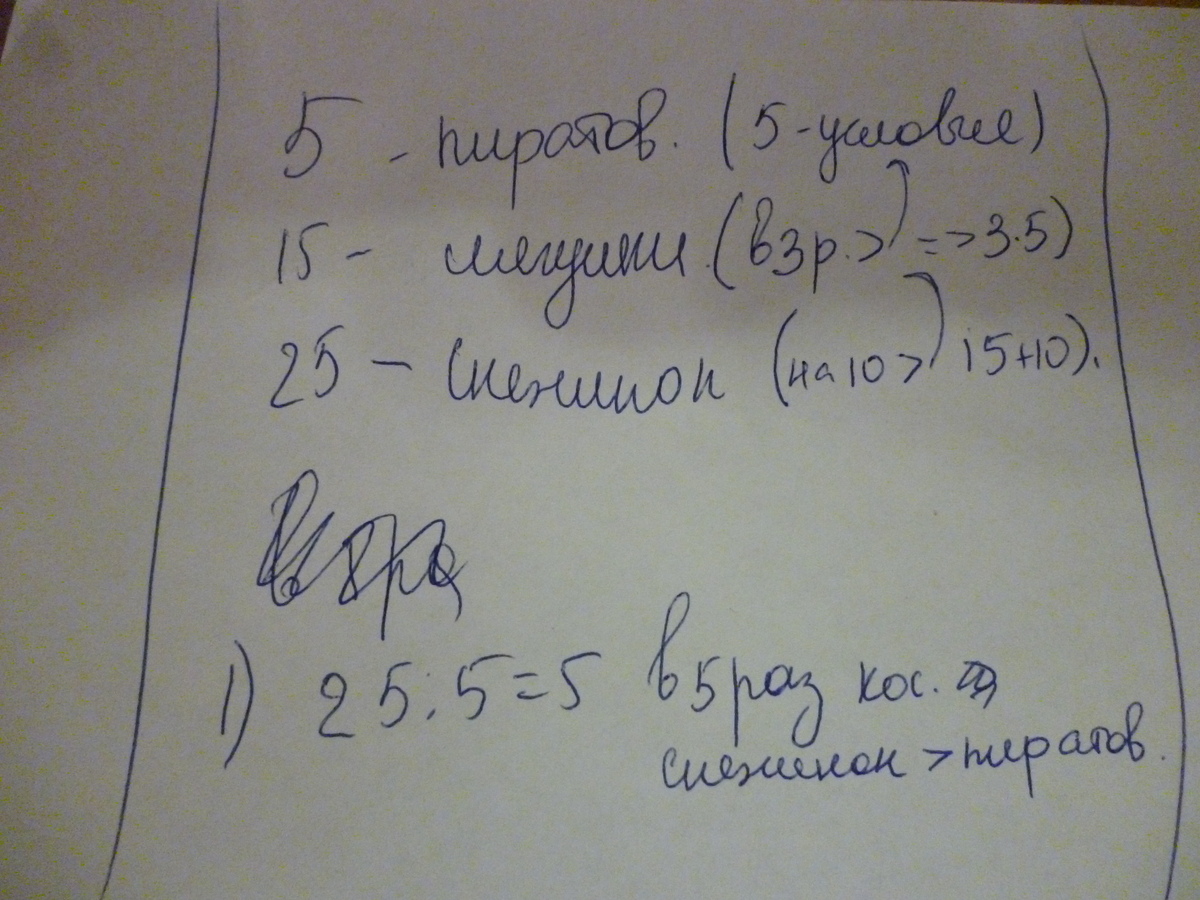 5 - пиратов. (5-условие)
15 - лягушки. (в 3р. > => 3.5)
25 - Снежинок (на 10 > 15+10).
1) 25:5=5 в 5 раз кос.
снежинок > пиратов.